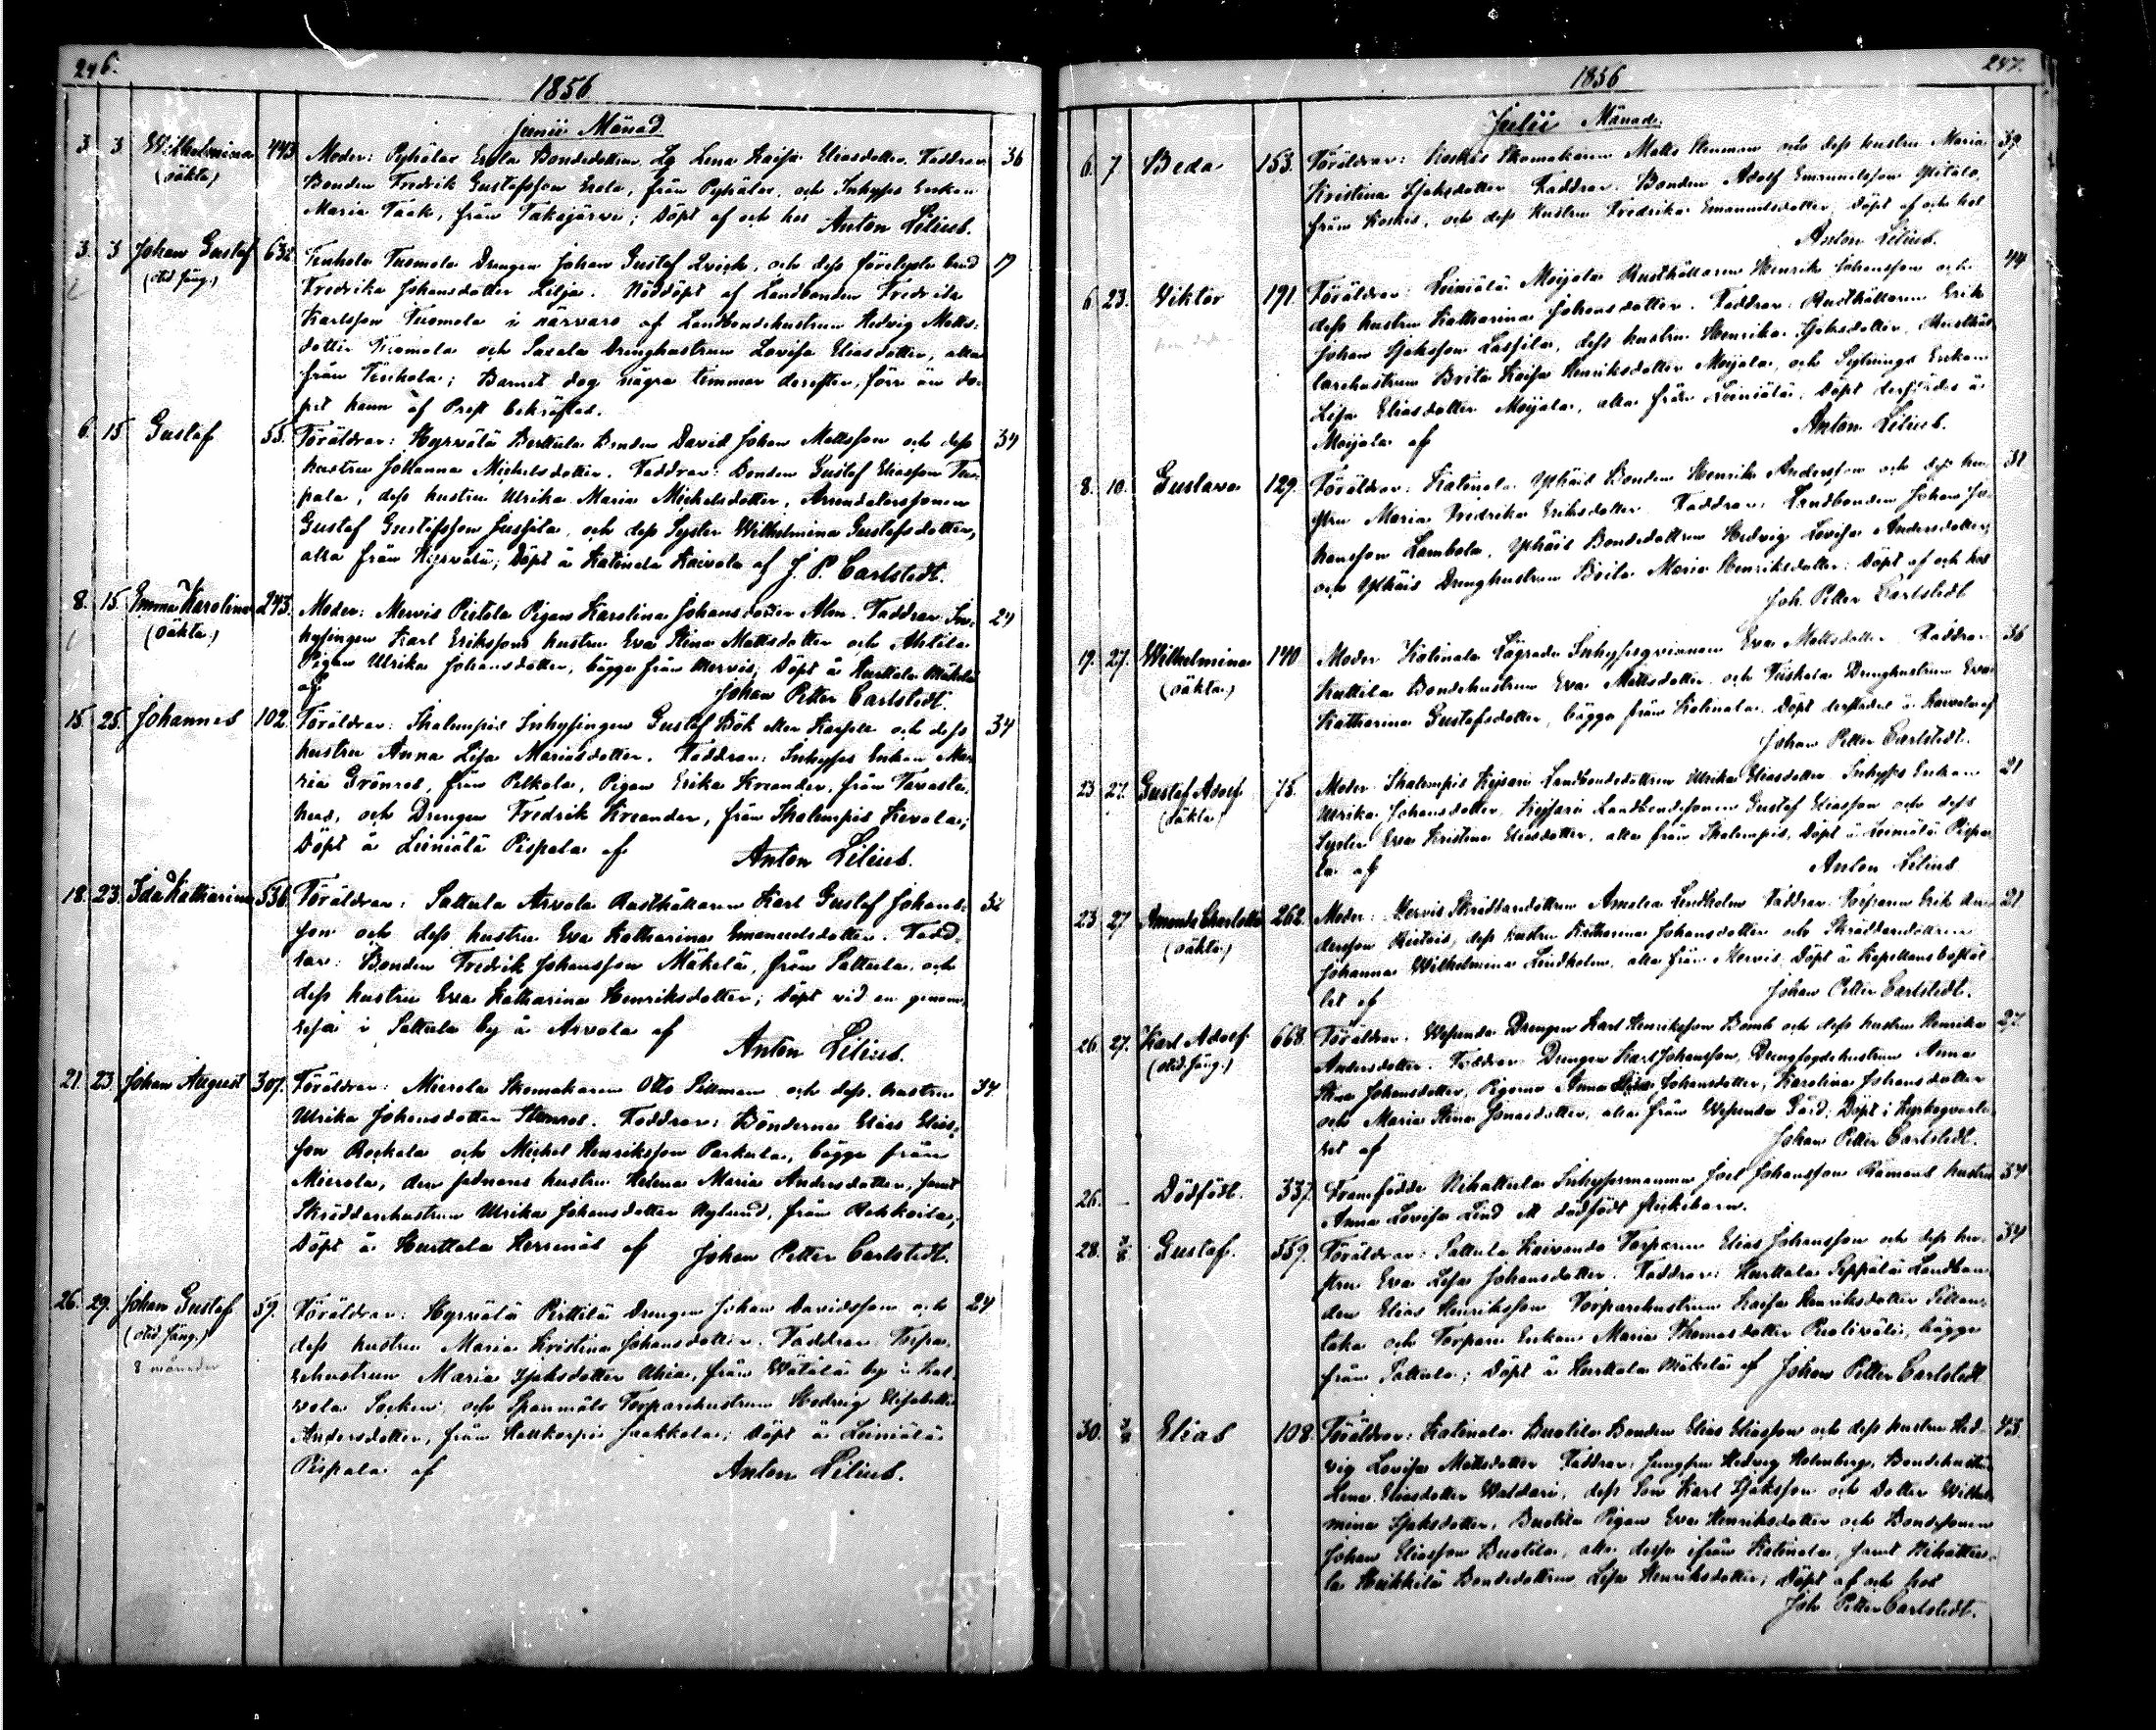 246.
1856
Junii Månad
3. 3 Wilhelmina 443. Moder: Pyhälax Erola Bondedottren Lg Lena Kaisa Eliasdotter. Faddrar 36
(oäkta) Bonden Fredrik Gustafsson Erola, från Pyhälax, och Inhyses Enkan
Maria Täck, från Takajärvi; Döpt af och hos Anton Lilius.
3. 3 Johan Gustaf 632. Tenhola Tuomola Drengen Johan Gustaf Qvick, och dess 19
(otid. säng.) Fredrika Johansdotter Lilja. Nöddöpt af Landbonden Fredrik
Karlsson Tuomola i närvaro af Landbondehustrun Hedvig Matts-
dotter Tuomola och Saxala Drenghustrun Lovisa Eliasdotter, alla
från Tenhola; Barnet dog några timmar derefter, förr än do-
pet hann af Prest bekräftas.
6. 15 Gustaf 55. Föräldrar: Hyrvälä Berttula Bonden David Johan Mattsson och dess 34
hustru Johanna Michelsdotter. Faddrar: Bonden Gustaf Eliasson
pala, dess hustru Ulrika Maria Michelsdotter, Arrendatorssonen
Gustaf Gustafsson Jussila, och dess Syster Wilhelmina Gustafsdotter,
alla från Hyrvälä; Döpt å Katinala Kaivola af J. P. Carlstedt.
8. 15. Emma Karolina 243. Moder: Mervis Pietola Pigan Karolina Johansdotter Alm. Faddrar: In- 24
(oäkta) hysingen Karl Erikssons hustru Eva Stina Mattsdotter och Ahlila
Pigan Ulrika Johansdotter, bägge från Mervis; Döpt å Hurttala Mäkelä
af Johan Petter Carlstedt.
15. 25. Johannes 102. Föräldrar: Ihalempis Inhysingen Gustaf Bök eller Kaxell och dess 34
hustru Anna Lisa Mariasdotter. Faddrar: Inhyses Enkan Ma-
ria Grönros, från Pelkola, Pigan Erika Kreander, från Tavaste-
hus, och Drengen Fredrik Kreander, från Ihalempis Kevola;
Döpt å Leiniälä Pispala af Anton Lilius.
18. 23. Ida Katharina 536. Föräldrar: Sattula Arvola Rusthållaren Karl Gustaf Johans- 32
son och dess hustru Eva Katharina Emanuelsdotter. Fadd-
rar: Bonden Fredrik Johansson Mäkelä, från Sattula, och
dess hustru Eva Katharina Henriksdotter; Döpt vid en genom-
resa i Sattula by å Arvola af
Anton Lilius.
21. 23. Johan August 307. Föräldrar: Mierola Skomakaren Otto Sillman och dess hustru 34
Ulrika Johansdotter Stenros. Faddrar: Bönderna Elias Elias-
son Rockala och Michel Henriksson Parkula, bägge från
Mierola, den sednares hustru Helena Maria Andersdotter, samt
Skräddarehustrun Ulrika Johansdotter Nylund, från Rahkoila;
Döpt å Hurttala Herrnäs af Johan Petter Carlstedt.
26. 29. Johan Gustaf 59. Föräldrar: Hyrvälä Pirttilä Drengen Johan Davidsson och 24
(otid. säng.) dess hustru Maria Kristina Johansdotter. Faddrar: Torpa-
8 månader rehustrun Maria Isaksdotter Ahia, från Wätälä by i Kal-
vola Socken, och Spanmäls Torparehustrun Hedvig Elisabeth
Andersdotter, från Hattkorpis Jaakkola; Döpt å Leiniälä
Pispala af Anton Lilius.
247.
1856
Julii Månad.
6. 7. Beda 153. Föräldrar: Koskis Skomakaren Matts Stenman och dess hustru Maria 39
Kristina Isaksdotter. Faddrar: Bonden Adolf Emanuelsson Ylitalo,
från Koskis, och dess Hustru Fredrika Emanuelsdotter; Döpt af och hos
Anton Lilius.
6 23. Viktor 191. Föräldrar: Leiniälä Moijala Rusthållaren Henrik Johansson och 44
dess hustru Katharina Johansdotter. Faddrar: Rusthållaren Erik
Johan Isaksson Lassila, dess hustru Henrika Isaksdotter, Rusthål-
larehustrun Brita Kaisa Henriksdotter Moijala, och Sytnings Enkan
Lisa Eliasdotter Moijala, alla från Leiniälä; Döpt derstädes å
Moijala af Anton Lilius.
8. 10. Gustava 129. Föräldrar: Katinala Yphäis Bonden Henrik Andersson och dess hu- 31
stru Maria Fredrika Eriksdotter. Faddrar: Landbonden Johan Jo-
hansson Lambola, Yphäis Bondedottren Hedvig Lovisa Andersdotter,
och Yphäis Drenghustrun Brita Maria Henriksdotter; Döpt af och hos
Joh. Petter Carlstedt
19. 27. Wilhelmina 140 Moder: Katinala Inhysesqvinnan Eva Mattsdotter. Faddrar 36
(oäkta) Kuttila Bondehustrun Eva Mattsdotter och Tuskala Drenghustrun Eva
Katharina Gustafsdotter, bägge från Katinala. Döpt derstädes å Kaivola af
Johan Petter Carlstedt.
23 27. Gustaf Adolf 75. Moder: Ihalempis Keijsari Landbondedottren Ulrika Eliasdotter. Inhyses Enkan 21
(oäkta) Ulrika Johansdotter, Keijsari Landbondesonen Gustaf Eliasson och dess
Syster Eva Kristina Eliasdotter, alla från Ihalempis, Döpt å Leiniälä Pispa-
la af Anton Lilius
23 27 Amanda Charlotta 262. Moder: Mervis Skräddaredottren Amalia Lindholm. Faddrar: Torparen Erik An- 21
(oäkta) dersson, dess hustru Katharina Johansdotter och Skräddaredottren
Johanna Wilhelmina Lindholm, alla från Mervis. Döpt å Kapellansbostäl-
let af Johan Petter Carlstedt.
26. 27. Karl Adolf 668 Föräldrar: Wesunda Drengen Karl Henriksson Bomb och dess hustru Henrika 27.
(otid. säng.) Andersdotter. Faddrar: Drengen Karl Johansson, Drengfogdehustrun Anna
Stina Johansdotter, Pigorna Anna Lisa Johansdotter, Karolina Johansdotter
och Maria Stina Jonasdotter, alla från Wesunda Gård; Döpt i Kyrkoqvarte-
ret af Johan Petter Carlstedt.
26. — Dödfödt. 337. Framfödde Nihattula Inhysesmannen Joel Johansson Ramans hustru 34
Anna Lovisa Lind ett dödfödt flickebarn.
28. 3/8 Gustaf. 559. Föräldrar: Sattula Kaivanda Torparen Elias Johansson och dess hu- 34
stru Eva Lisa Johansdotter. Faddrar: Hurttala Seppälä Landbon-
den Elias Henriksson, Torparehustrun Kaisa Henriksdotter Sillan-
taka och Torpare Enkan Maria Thomasdotter Puolivälii, bägge
från Sattula; Döpt å Hurttala Mäkelä af Johan Petter Carlstedt
30. 3/8 Elias 108. Föräldrar: Katinala Buotila Bonden Elias Eliasson och dess hustru Hed- 43.
vig Lovisa Mattsdotter. Faddrar: Jungfru Hedvig Holmberg, Bondehustrun
Lena Eliasdotter Waldari, dess Son Karl Isaksson och Dotter Wilhel-
mina Isaksdotter, Buotila Pigan Eva Henriksdotter och Bondesonen
Johan Eliasson Buotila, alla desse ifrån Katinala, samt Nihattu-
la Heikkilä Bondedottren Lisa Henriksdotter; Döpt af och hos
Joh Petter Carlstedt.